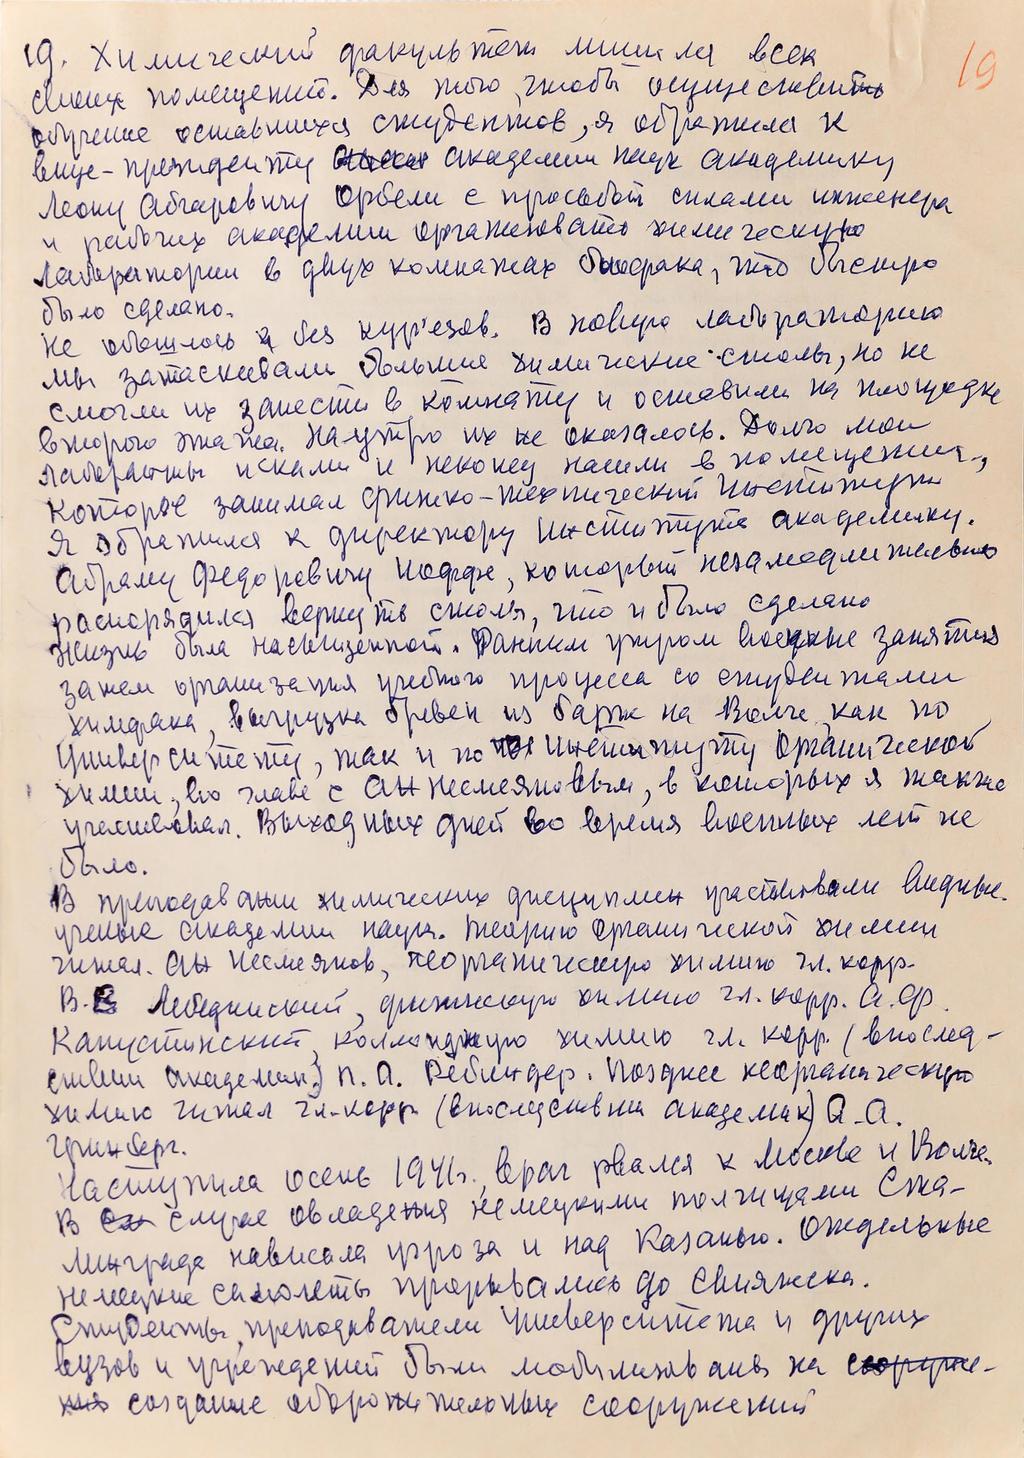 19. Химический факультет лишился всех
19
своих помещений. Для того, чтобы осуществить
обучение оставшихся студентов, я обратился к
вице-президенту академии наук академику
Леону Абгаровичу Орбели с просьбой силами инженера
и рабочих академии организовать химическую
лабораторию в двух комнатах биофака, что быстро
было сделано.
Не обошлось и без кур'езов. В новую лабораторию
мы затаскивали большие химические столы, но не
смогли их занести в комнату и оставили на площадке
второго этажа. На утро их не оказалось. Долго мои
лаборанты искали и наконец нашли в помещении,
которое занимал физико-технический институт.
Я обратился к директору института академику
Абраму Федоровичу Иоффе, который незамедлительно
распорядился вернуть столы, что и было сделано
Жизнь была насыщенной. Ранним утром военные занятия
затем организация учебного процесса со студентами
химфака, выгрузка бревен из барж на Волге как по
Университету, так и по институту органической
химии, во главе с АН Несмеяновым, в которых я также
участвовал. Выходных дней во время военных лет не
было.
В преподавании химических дисциплин участвовали видные
ученые академии наук. Теорию органической химии
читал АН Несмеянов, неорганическую химию чл. корр.
В. В Лебединский, физическую химию чл. корр. А. Ф.
Капустинский, коллоидную химию чл. корр. (впослед-
ствии академик) П. А. Ребиндер. Позднее неорганическую
химию читал чл-корр (впоследствии академик) А. А.
Гринберг.
Наступила осень 1941г., враг рвался к Москве и Волге.
В случае овладения немецкими полчищами Ста-
линграда нависала угроза и над Казанью. Отдельные
немецкие самолеты прорывались до Свияжска.
Студенты, преподаватели Университета и других
вузов и учреждений были мобилизованы на сооруже-
ния создание оборонительных сооружений